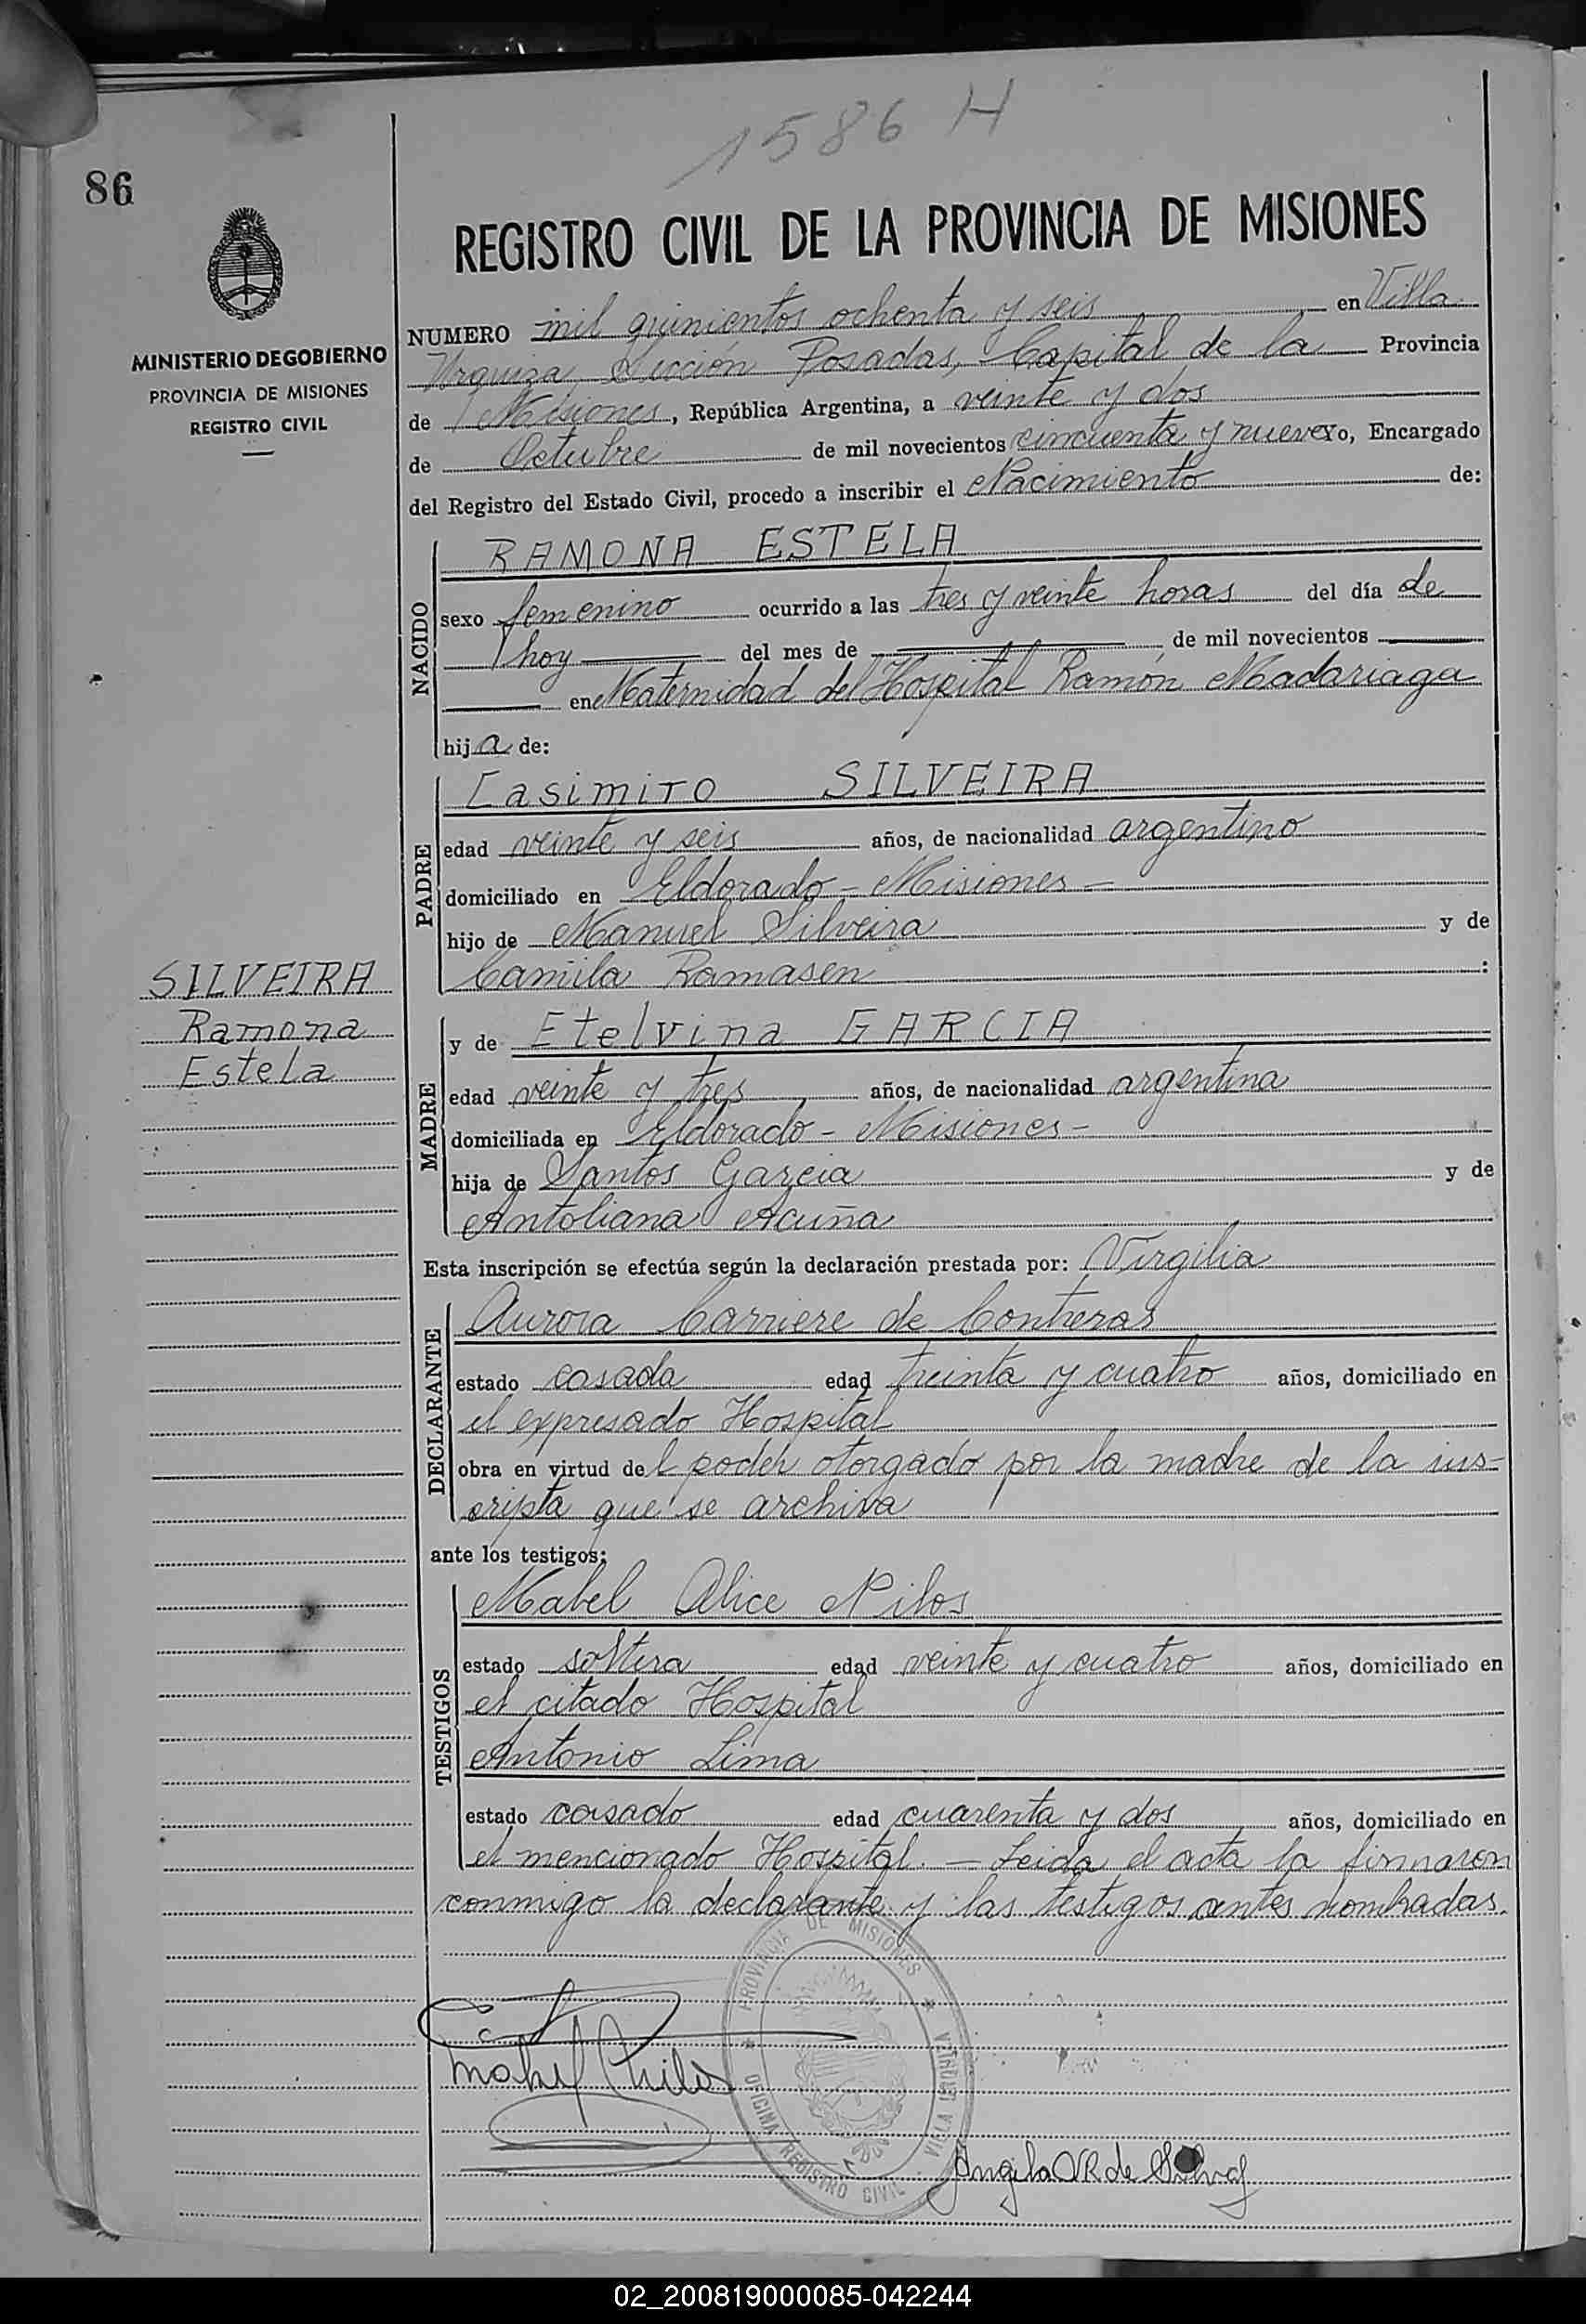 1586 H
86
REGISTRO CIVIL DE LA PROVINCIA DE MISIONES
MINISTERIO DE GOBIERNO
PROVINCIA DE MISIONES
REGISTRO CIVIL
NUMERO mil quinientos ochenta y seis en Villa
Urquiza, Sección Posadas, Capital de la Provincia
de Misiones, República Argentina, a veinte y dos
de Octubre de mil novecientos cincuenta y nueve yo, Encargado
del Registro del Estado Civil, procedo a inscribir el Nacimiento de:
NACIDO
RAMONA ESTELA
sexo femenino ocurrido a las tres y veinte horas del día de
hoy del mes de de mil novecientos
en Maternidad del Hospital Ramón Madariaga
hija de:
PADRE
Casimiro SILVEIRA
edad veinte y seis años, de nacionalidad argentino
domiciliado en Eldorado - Misiones -
hijo de Manuel Silveira y de
Camila Ramasen :
SILVEIRA
Ramona
Estela
MADRE
y de Etelvina GARCIA
edad veinte y tres años, de nacionalidad argentina
domiciliada en Eldorado - Misiones -
hija de Santos Garcia y de
Antoliana Acuña
Esta inscripción se efectúa según la declaración prestada por: Virgilia
DECLARANTE
Aurora Carriere de Contreras
estado casada edad treinta y cuatro años, domiciliado en
el expresado Hospital
obra en virtud del poder otorgado por la madre de la ins-
cripta que se archiva
ante los testigos:
TESTIGOS
Mabel Alice Nilos
estado soltera edad veinte y cuatro años, domiciliado en
el citado Hospital
Antonio Lima
estado casado edad cuarenta y dos años, domiciliado en
el mencionado Hospital. — Leida el acta la firmaron
conmigo la declarante y las testigos antes nombradas.
PROVINCIA DE MISIONES * VILLA URQUIZA
* OFICINA REGISTRO CIVIL
Mabel
Angela de
02_200819000085-042244